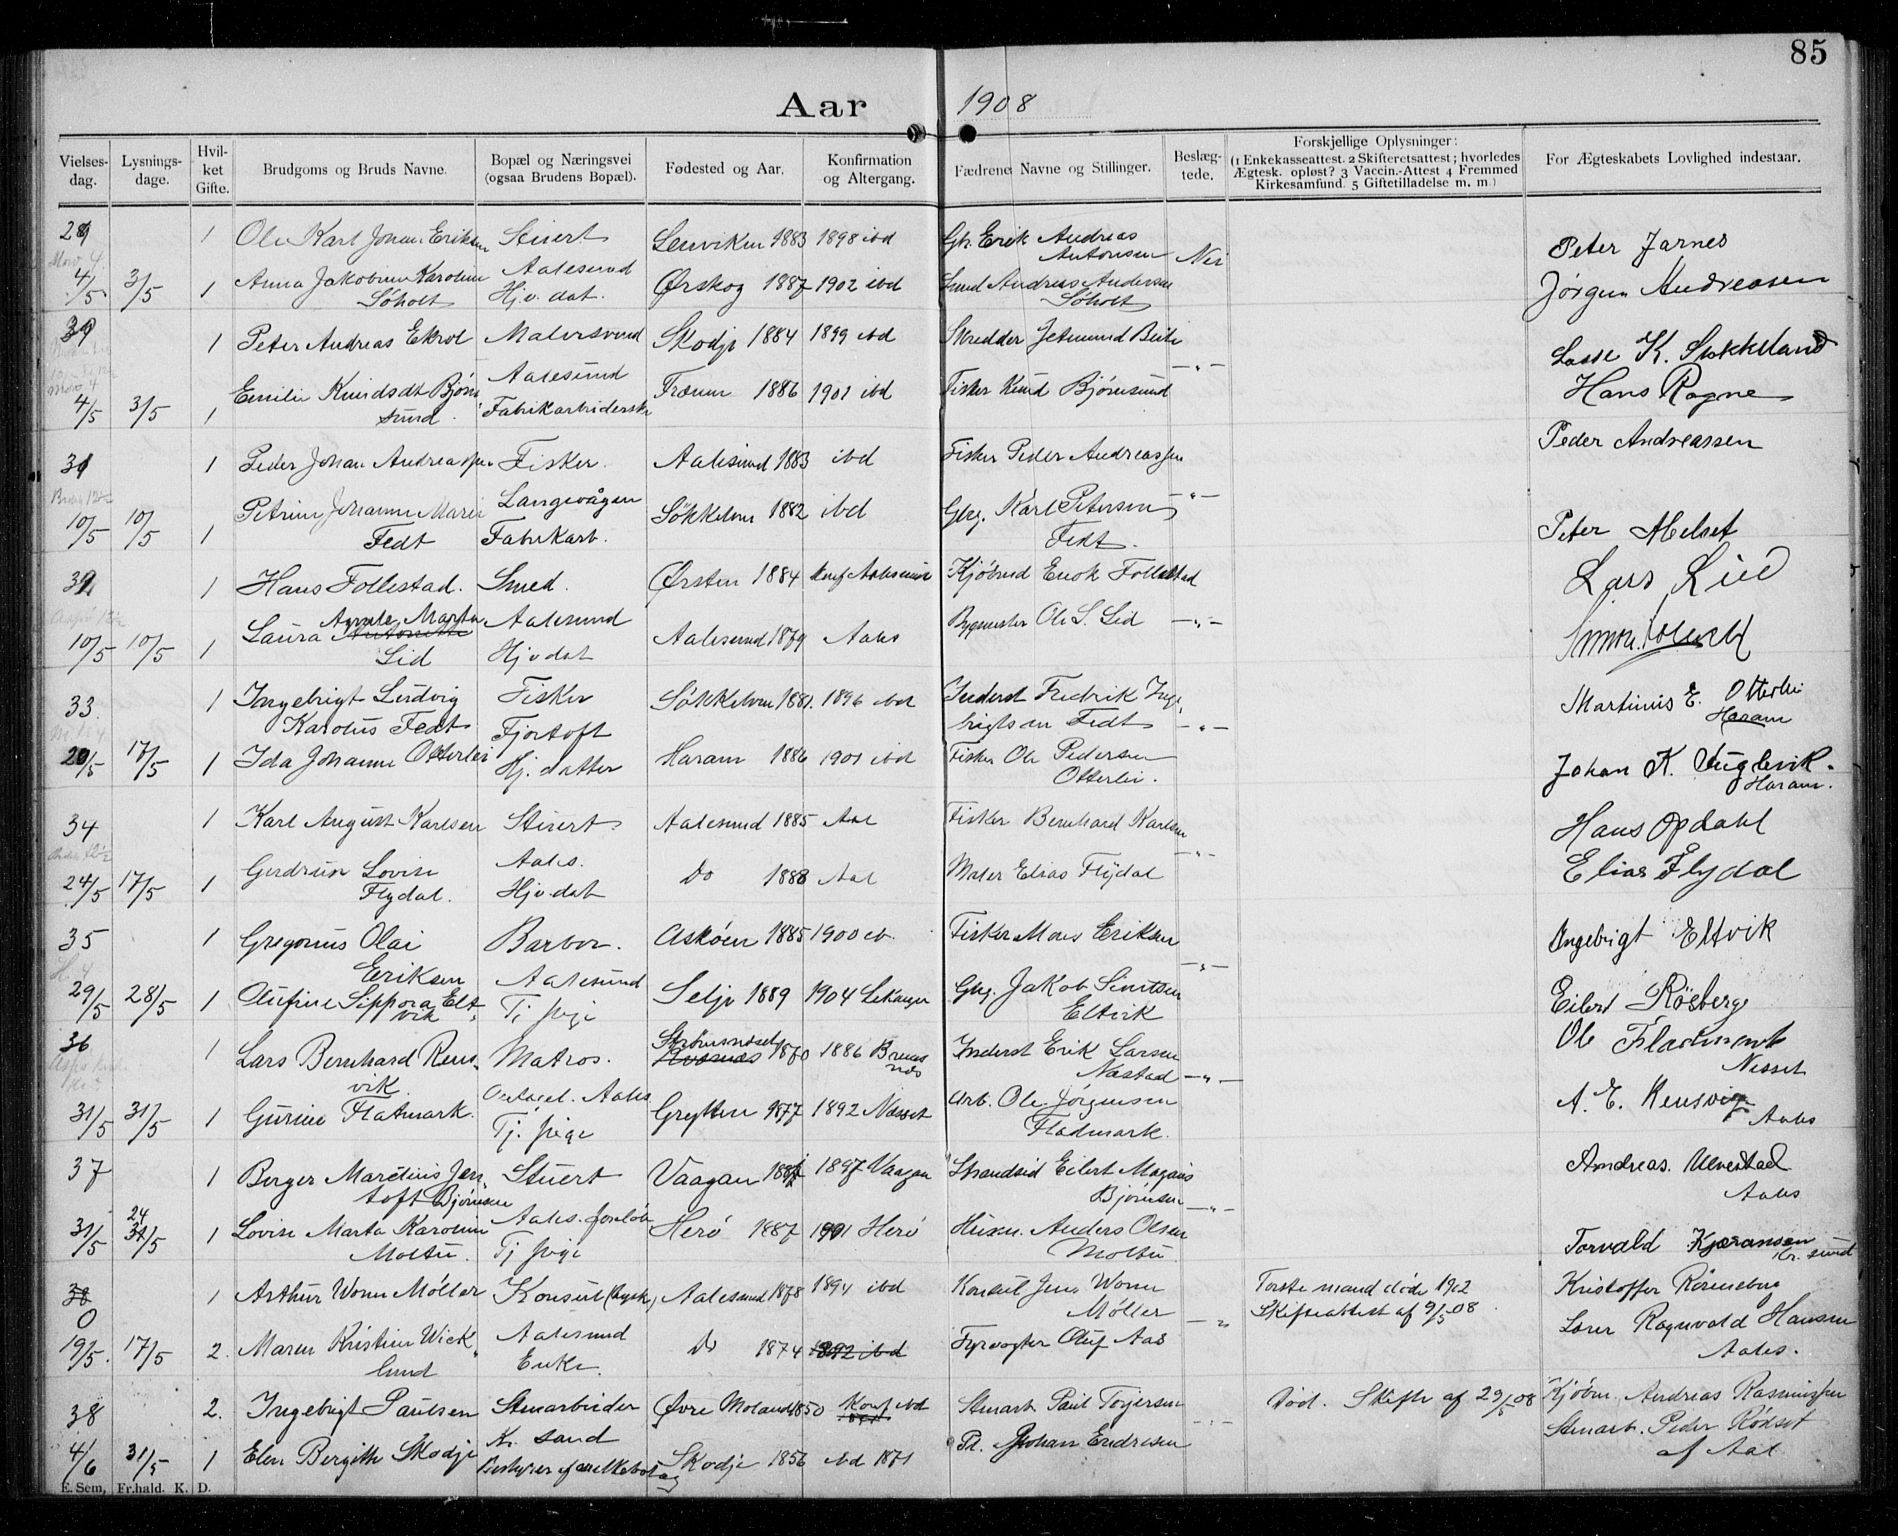 85
Aar 1908
Vielses- dag. Lysnings- dage. Hvil- ket Gifte. Brudgoms og Bruds Navne. Bopæl og Næringsvei (ogsaa Brudens Bopæl). Fødested og Aar. Konfirmation og Altergang. Fædrene Navne og Stillinger. Beslæg- tede. Forskjellige Oplysninger: (1 Enkekasseattest. 2 Skifteretsattest; hvorledes Ægtesk. opløst? 3 Vaccin.-Attest 4 Fremmed Kirkesamfund. 5 Giftetilladelse m. m.) For Ægteskabets Lovlighed indestaar.
29 1 Ole Karl Johan Eriksen Stuert Lenviken 1883 1898 ibd Gb. Erik Andreas Antonsen Nei Peter Jarnes
4/5 3/5 1 Anna Jakobine Karoline Søholt Aalesund Hjv. dat. Ørskog 1887 1902 ibd Smed Andreas Andersen Søholt Jørgen Andreasen
30 1 Peter Andreas Ekrol Malersvend Skodje 1884 1899 ibd Skredder Jetmund Lasse K. Stokkeland
4/5 3/5 1 Emilie Knudsdt Bjørnsund Aalesund Fabrikarbiderske Frænen 1886 1901 ibd Fisker Knud Bjørnsund -"- Hans Rogne
31 1 Peder Johan Andreassen Fisker. Aalesund 1883 ibd Fisker Peder Andreassen Peder Andreassen
10/5 10/5 1 Petrine Johanne Marie Fedt Langevågen Fabrikarb. Søkkelven 1882 ibd Gbg. Karl Petersen Fedt. -"- Peter Melset
32 1 Hans Follestad. Smed. Ørsten 1884 Konf Aalesund Kjøbmd Enok Follestad Lars Lied
10/5 10/5 1 Laura Amale Marta Lid Aalesund Hjv dat Aalesund 1879 Aales Bygmester Ole S. Lid -"-
33. 1 Ingebrigt Ludvig Karolus Fedt Fisker Fjortoft Søkkelven 1881. 1896 ibd Inderst Fredrik Ingebrigtsen Fedt -"- Martinus E. Otterlei Haram
20/5 17/5 1 Ida Johanne Otterlei Hj. datter Haram 1886 1901 ibd Fisker Ole Pedersen Otterlei. Johan K. Fuglevik. Haram.
34 1 Karl August Karlsen Stuert Aalesund 1885 Aal Fisker Bernhard Karlsen Hans Opdahl
24/5 17/5 1 Gudrun Lovise Flydal. Aales. Hjv. dat Do 1888 Aal Maler Elias Flydal -"- Elias Flydal
35 1 Gregorius Olai Eriksen Barber. Aalesund Askøen 1885 1900 ib. Fisker Mons Eriksen Ingebrigt Eltvik
29/5 28/5 1 Olufine Sippora Eltvik Tj. pige Selje 1889 1904 Lekanger Gbg. Jakob Simtsen Eltvik -"- Eilert Røsberg
36 1 Lars Bernhard Rensvik Matros. Strømsneset 1870 1886 Bremsnes Inderst Erik Larsen Næstad -"- Ole Fladmark Nesset
31/5 31/5 1 Gurine Flatmark. Aales Tj. pige Grytten 1877 1892 Næsset Arb. Ole Jørgensen Fladmark. A. E. Rensvig Aales
37 1 Berger Martinus Jentoft Bjørnsen Stuert Vaagan 1897 Vaagan Strandsid Eilert Magnus Bjørnsen -"- Andreas. Ulvestad Aales
31/5 24/5 1 Lovise Marta Karoline Moltu. Aales. Tj pige Herø 1887 1901 Herø Husm. Anders Olsen Moltu Torvald Kjøransen Kr. sund
38 0 1 Arthur Worm Møller Konsul (tysk) Aalesund 1878 1894 ibd Konsul Jens Worm Møller Første mand døde 1902 Skifteattest af 9/5 08 Kristoffer Rønneberg
19/5. 17/5 2. Maren Kristine Wicklund Aalesund Enke. Do 1874 1892 ibd Fyrvogter Oluf Aas -"- Lorer Ragnvald Hansen Aales.
38 2. Ingebrigt Paulsen Stenarbeider Kr. sand Øvre Moland 1850 Konf ibd Stenarb. Paul Torjersen -"- Død. Skifte af 29/5 08 Kjøbm. Andreas Rasmussen
4/6 31/5 1 Elen Bergitte Skodje Skodje 1856 ibd 1871 Johan Endresen Stenarb. Peder Rødset af Aal
E. Sem, Fr.hald. K. D.